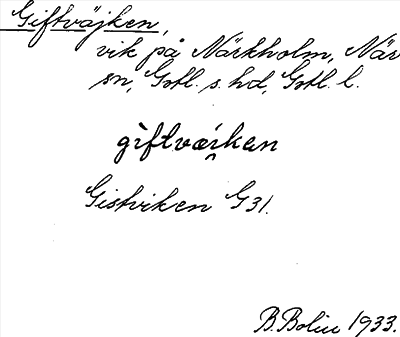 Giftväjken,
vik på Närkholm, När
sn, Gotl. s. hd, Gotl. l.
giftvæi̯kən
Gistviken G31.
B. Bolin 1933.